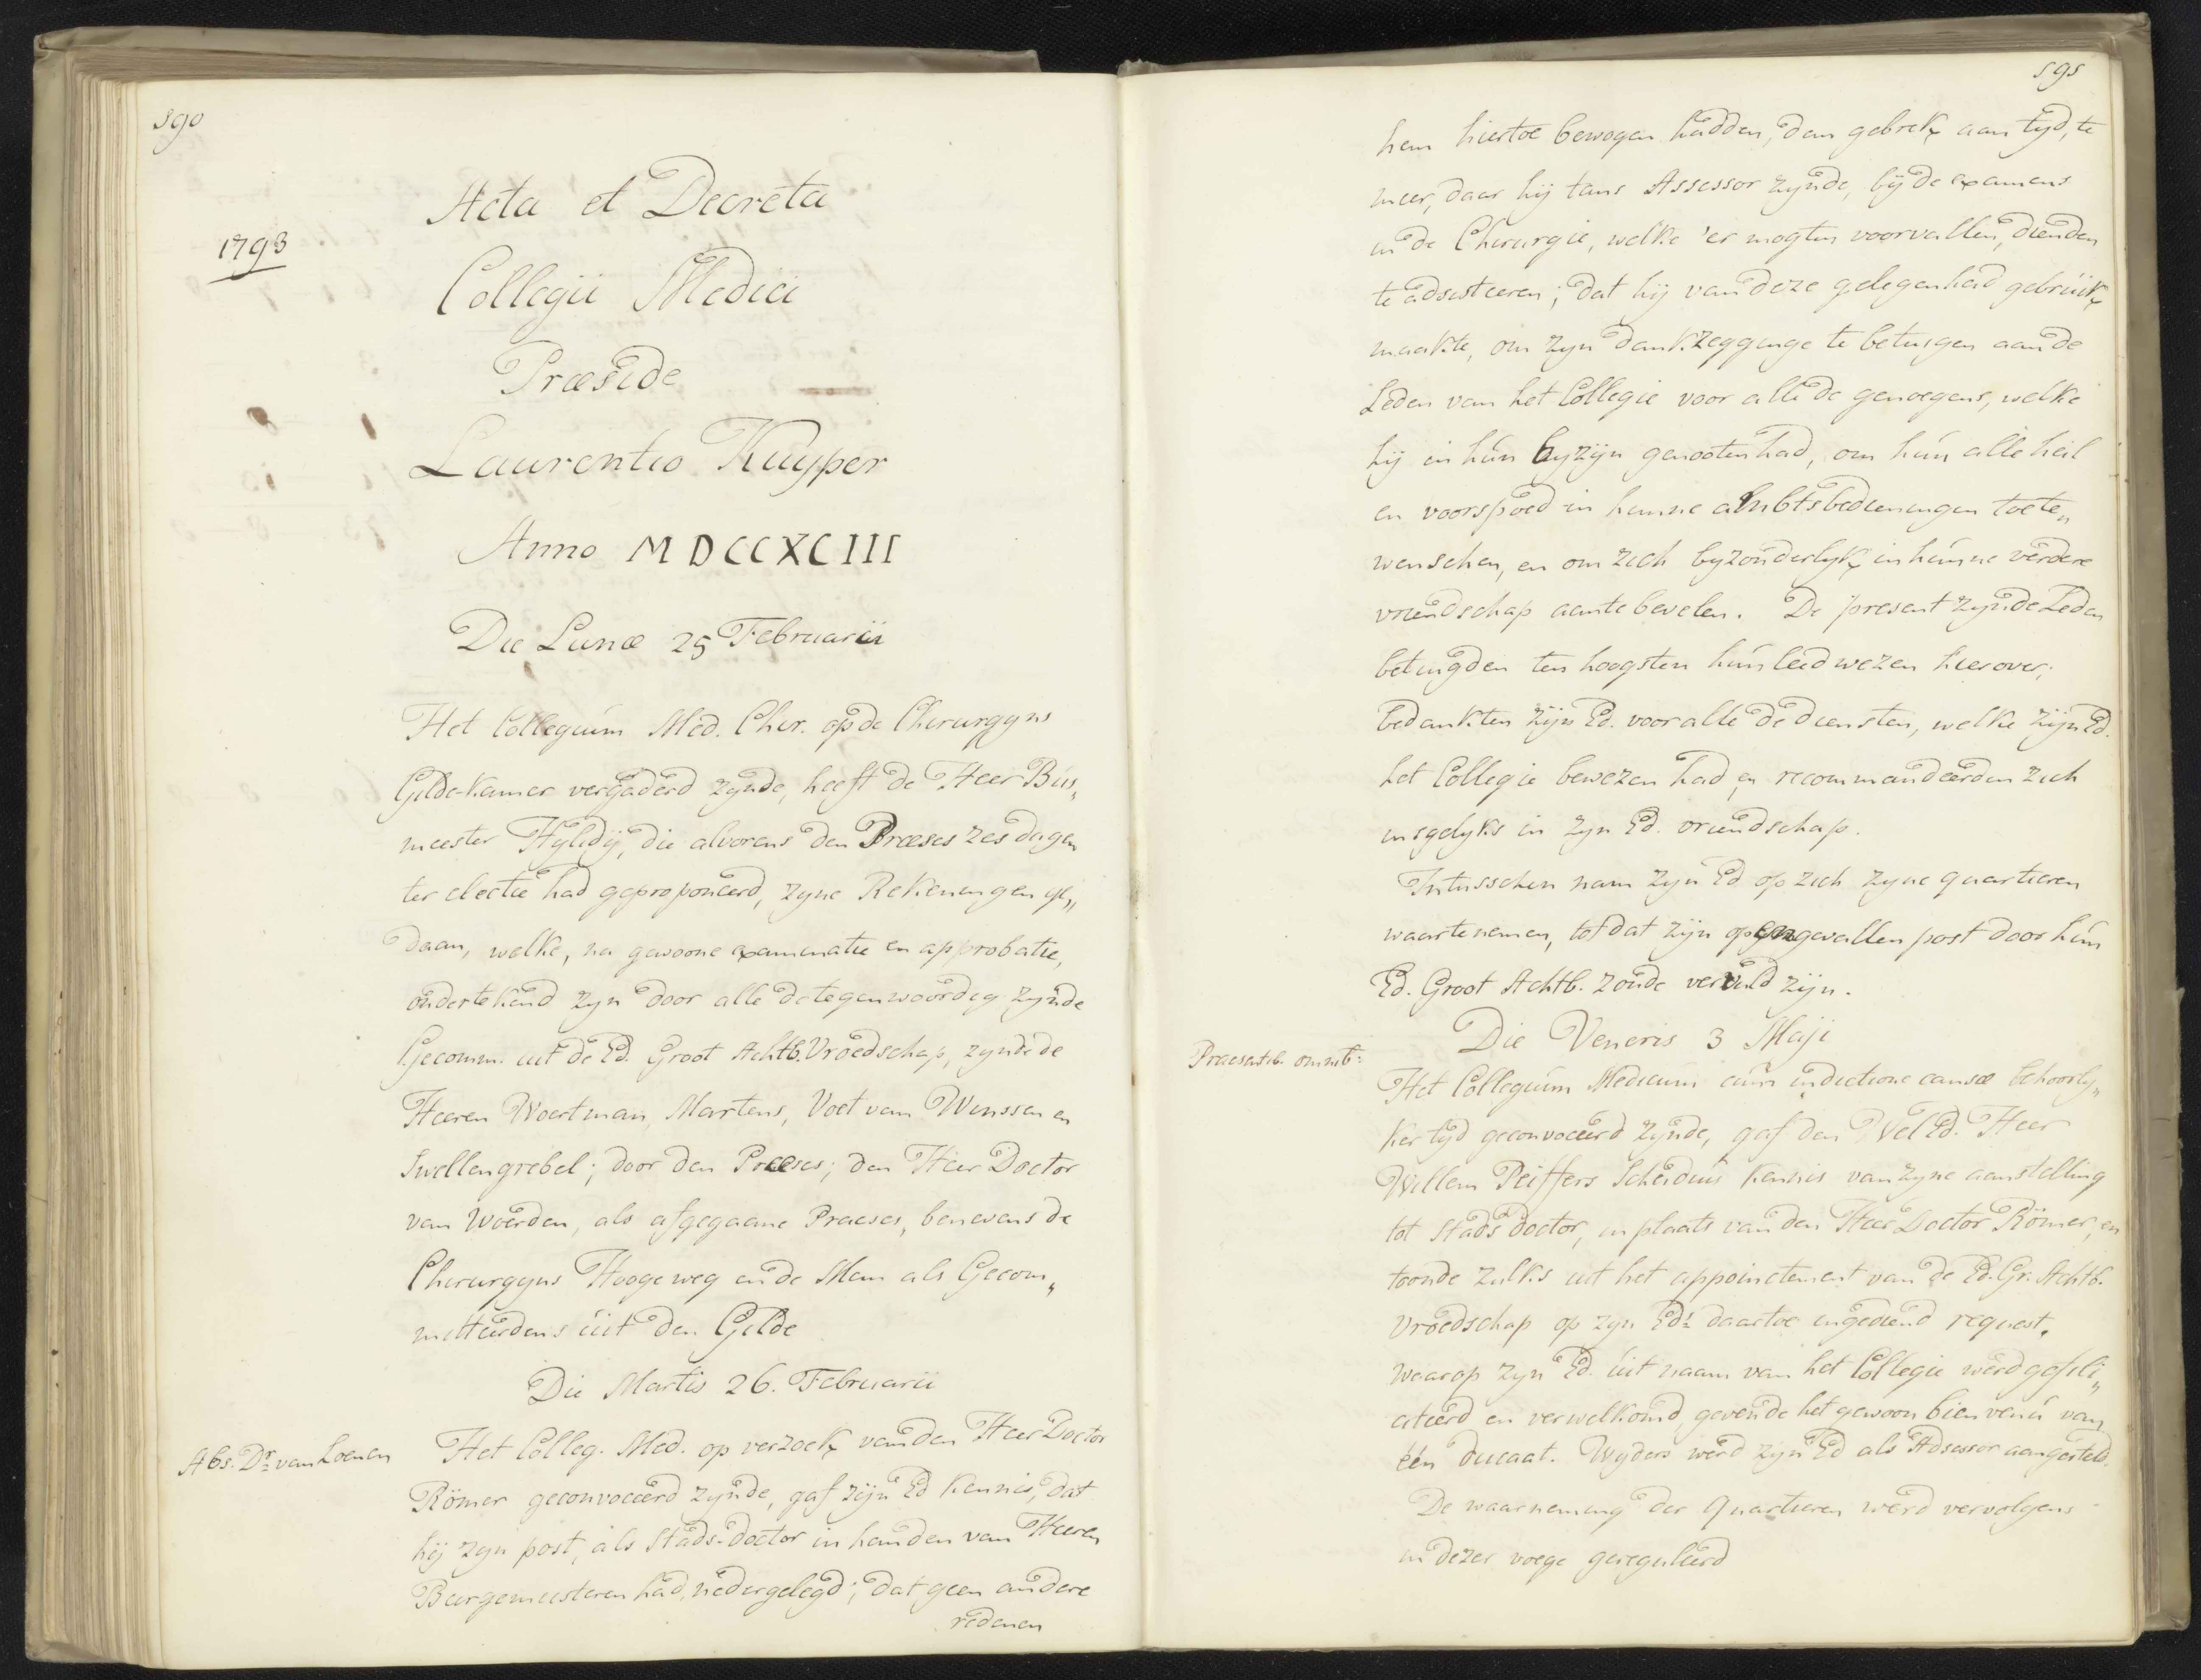 590
1793
Acta et Decreta
Collegii Medici
Præside
Laurentio Kuyper
Anno MDCCXCIII
Die Lunæ 25 Februarii
Het Collegium Med. Chir. op de Chirurgyns
Gilde-Kamer vergaderd zynde, heeft de Heer Bus„
meester Hylidÿ, die alvorens den Præses zes dagen
ter electie had geproponeerd, zyne Rekeningen ge„
daan, welke, na gewoone examinatie en approbatie,
ondertekend zyn door alle de tegenwoordig zynde
Gecomm. uit de Ed. Groot Achtb. Vroedschap, zynde de
Heeren Woertman, Martens, Voet van Winssen en
Swellengrebel; door den Præses; den Heer Doctor
van Woerden, als afgegaane Praeses, benevens de
Chirurgyns Hoogeweg en de Man als Gecom„
mitteerdens uit den Gilde
Die Martis 26. Februarii
Abs. Dr. van Loenen
Het Colleg. Med. op verzoek van den Heer Doctor
Römer geconvoceerd zynde, gaf zijn Ed kennis, dat
hij zyn post, als Stads-doctor in handen van Heeren
Burgemeesteren had nedergelegd; dat geen andere
redenen
595
hem hiertoe bewogen hadden, dan gebrek aan tyd, te
meer, daar hij tans Assessor zynde, bij de examens
in de Chirurgie, welke 'er mogten voorvallen, dienden
te adsisteeren; dat hij van deze gelegenheid gebruik
maakte, om zyn dankzegginge te betuigen aan de
Leden van het Collegie voor alle de genoegens, welke
hij in hun byzijn genooten had, om hun alle heil
en voorspoed in hunne ambtsbedieningen toete„
wenschen, en om zich byzonderlyk in hunne verdere
vriendschap aante bevelen. De present zynde Leden
betuigden ten hoogsten hun leedwezen hierover;
bedankten zijn Ed. voor alle de diensten, welke zijn Ed.
het Collegie bewezen had en recommandeerden zich
insgelyks in zyn Ed. vriendschap.
Intusschen nam zyn Ed op zich zyne quartieren
waartenemen, tot dat zijn opengevallen post door hun
Ed. Groot Achtb. zoude vervuld zijn.
Die Veneris 3 Maji
Praesentib. omnib:
Het Collegium Medicum cum indictione causæ behoorly„
ker tijd geconvoceerd zynde, gaf den Wel Ed. Heer
Willem Peiffers Scheidius kennis van zyne aanstelling
tot Stads doctor, in plaats van den Heer Doctor Römer, en
toonde zulks uit het appoinctement van de Ed. Gr: Achtb.
Vroedschap op zyn Eds. daartoe ingediend request.
Waarop zyn Ed. uit naam van het Collegie werd gefeli„
citeerd en verwelkomd, gevende het gewoon bien venu van
één ducaat. Wyders werd zijn Ed als Adsessor aangesteld.
De waarneming der Quartieren werd vervolgens
in dezer voege gereguleerd